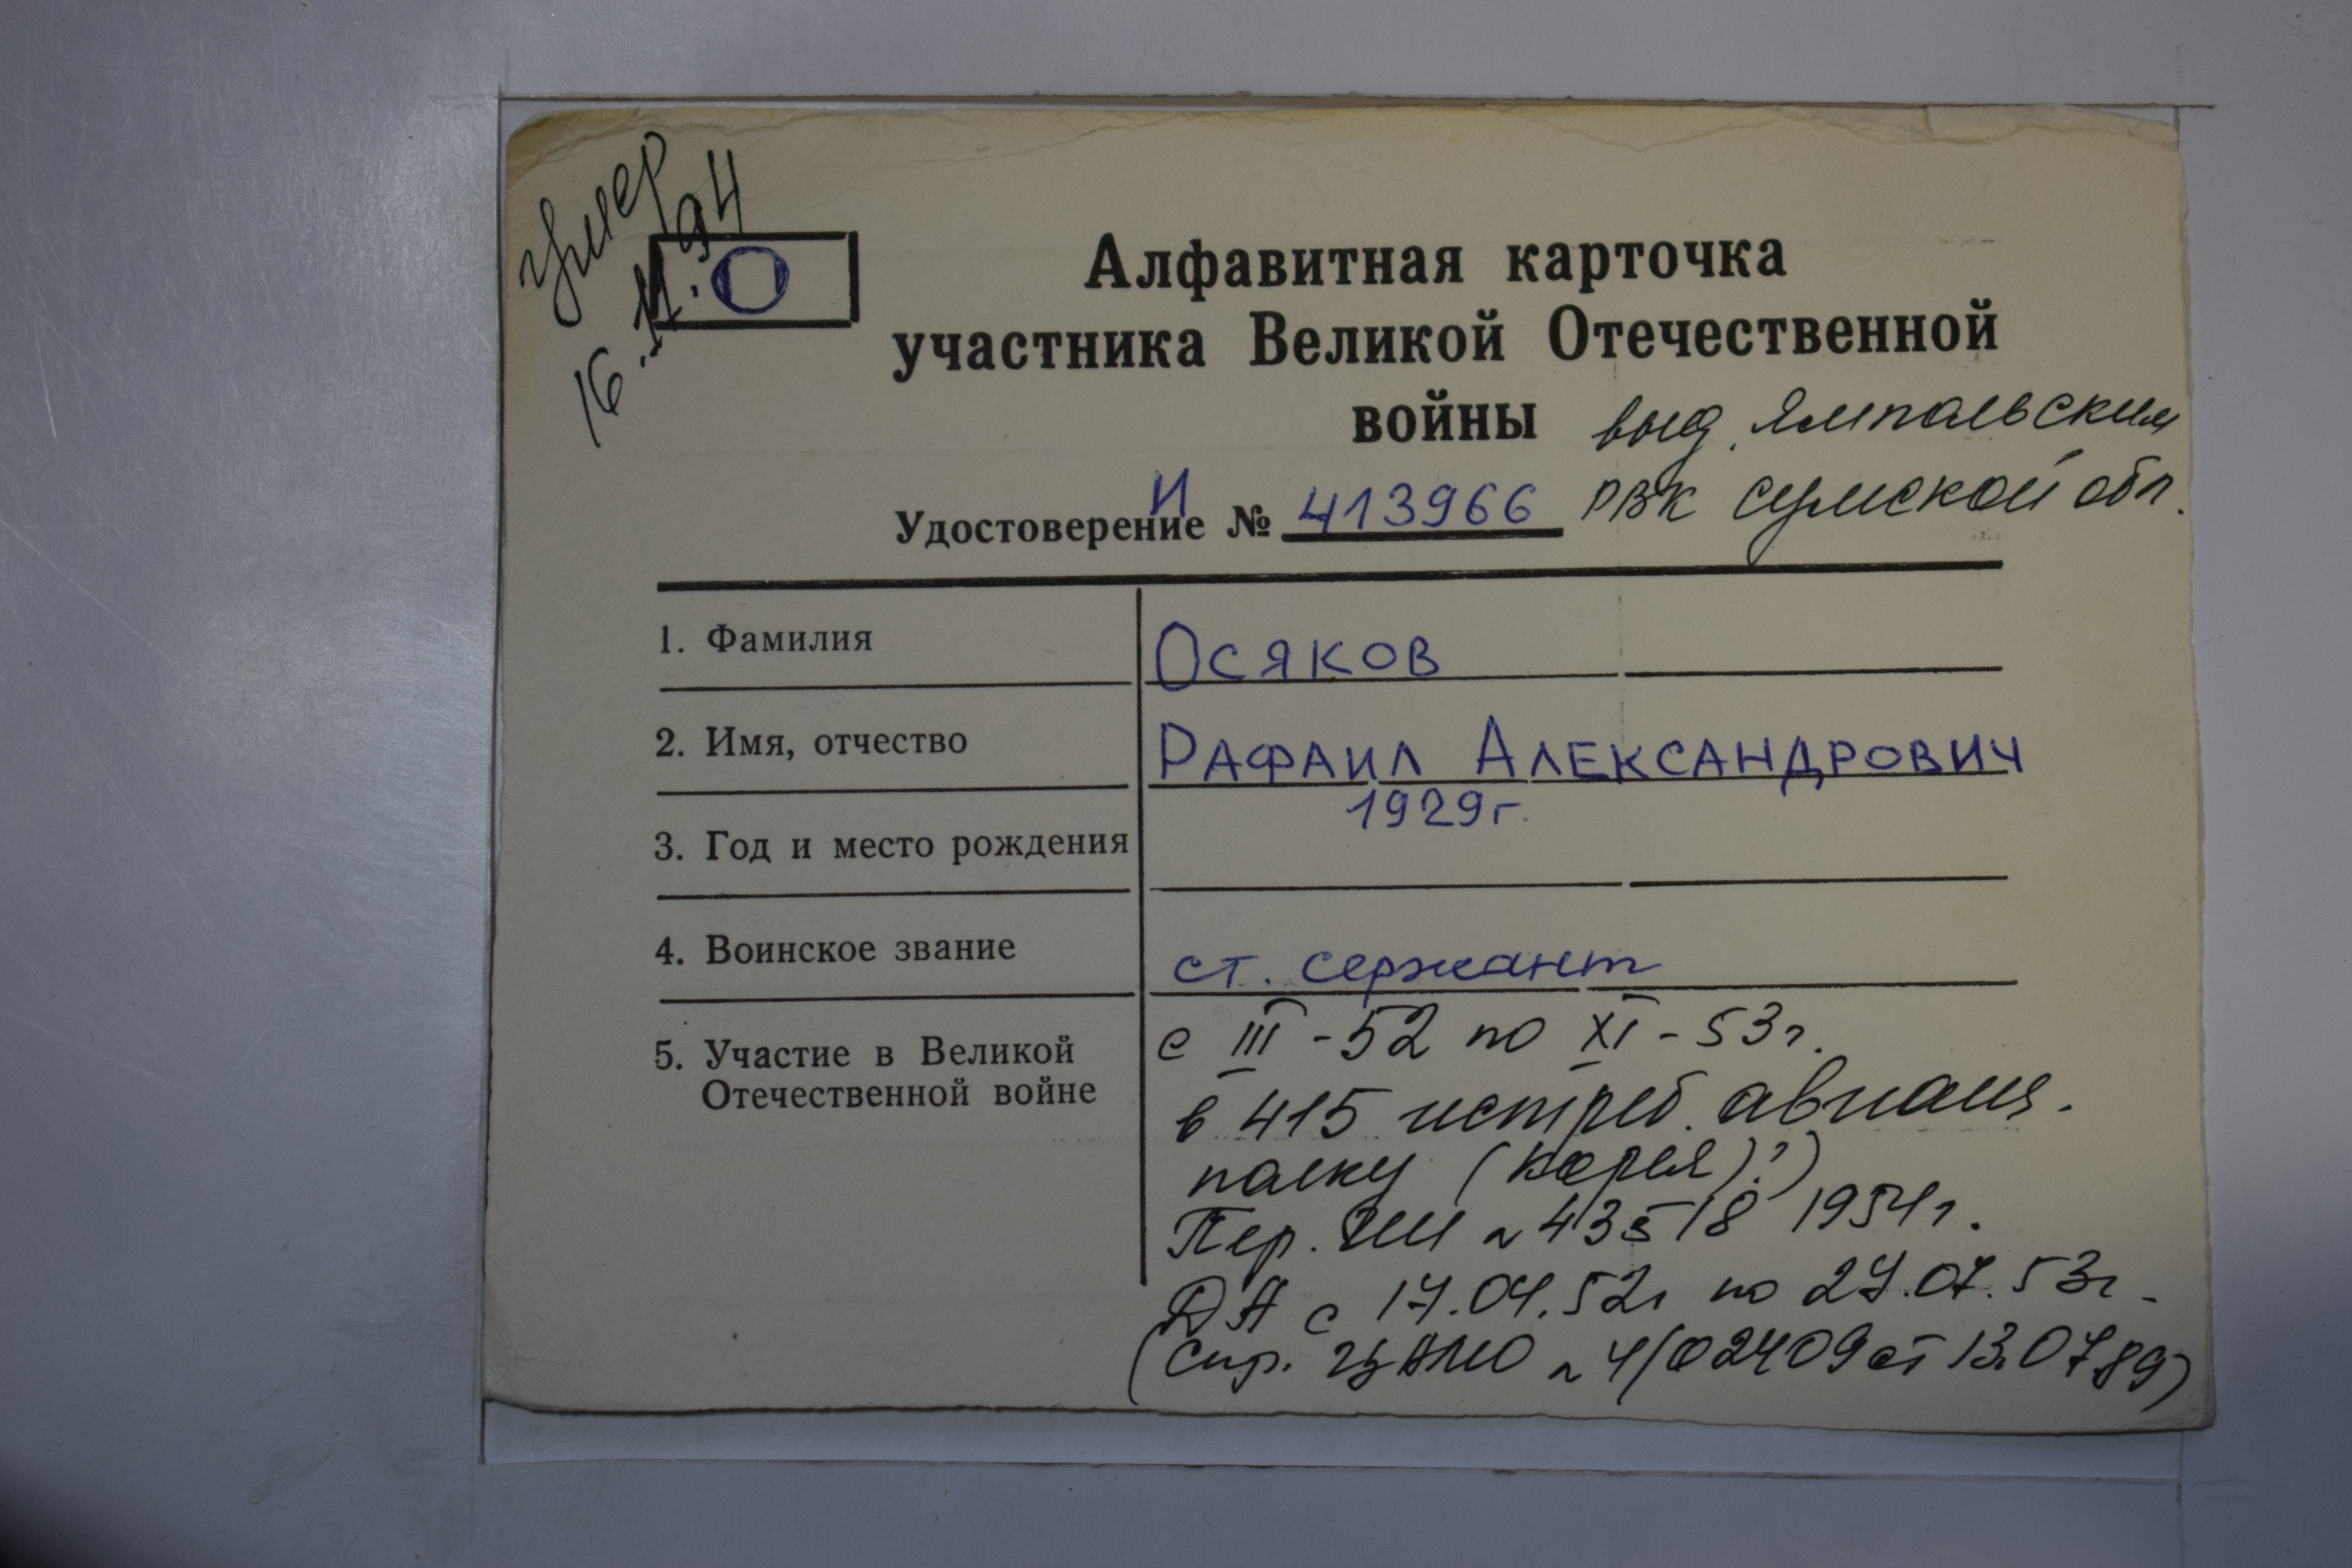 умер
16.11.94
О
Алфавитная карточка
участника Великой Отечественной
войны
выд. Ямпольским
РВК Сумской обл.
Удостоверение И № 413966
1. Фамилия Осяков
2. Имя, отчество Рафаил Александрович
3. Год и место рождения 1929г.
4. Воинское звание ст. сержант
5. Участие в Великой Отечественной войне
с III-52 по XI-53г.
в 415 истреб. авиац.
полку (Корея)?)
Пер. № 43518 1954г.
ДА с 17.04.52г по 27.07.53г.
(Спр. ЦАМО № 4/02409 от 13.07.89)